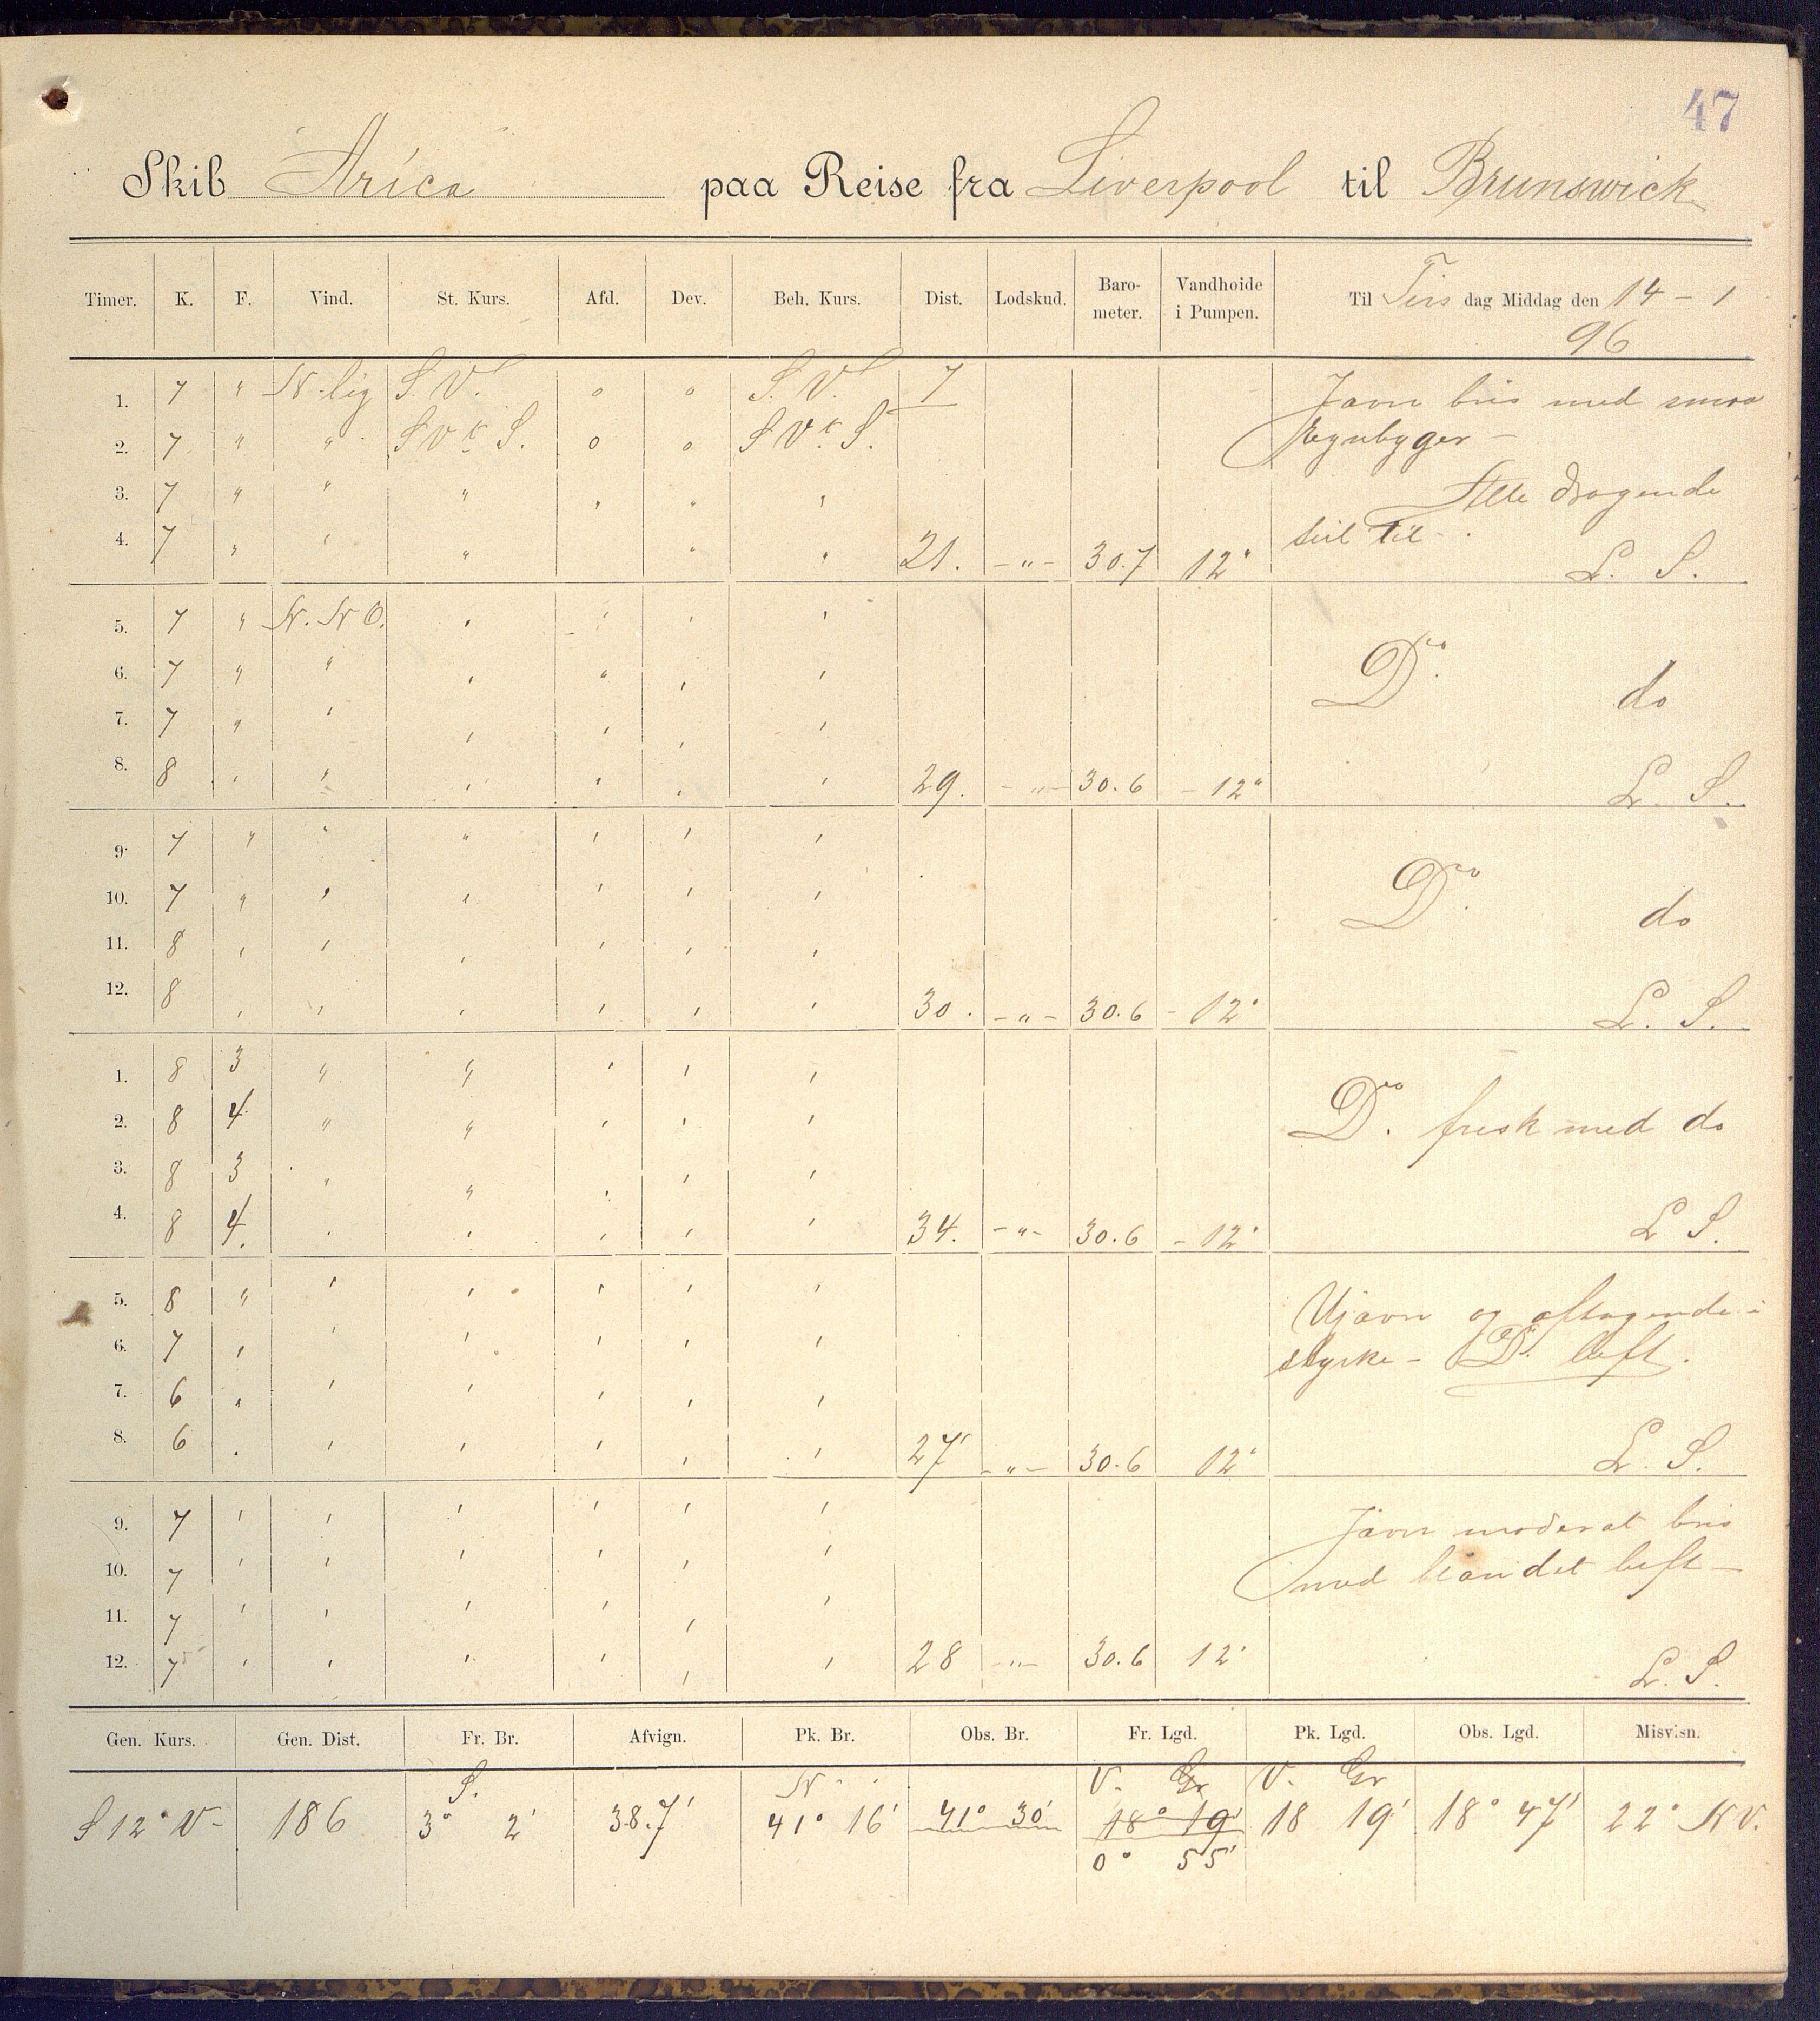 47
Skib Arica paa Reise fra Liverpool til Brunswick
Timer. K. F. Vind. St. Kurs. Afd. Dev. Beh. Kurs. Dist. Lodskud. Baro-meter. Vandhøide i Pumpen. Til Tirs dag Middag den 14 - 1
96
1. 7 " N.lig S. V. o o S. V. 7 Jævn bris med smaa
2. 7 " " S V t S. o o S V t S. Regnbyger -
3. 7 " " " " " " Alle dragende
4. 7 " " " " " 21. - " - 30.7 12" seil til - .
L. S.
5. 7 " N. N O. " " " "
6. 7 " " " " " " Do. do
7. 7 " " " " " "
8. 8 " " " " " " 29. - " - 30.6 - 12" L. S.
9. 7 " " " " " "
10. 7 " " " " " " Do. do
11. 8 " " " " " "
12. 8 " " " " " " 30. - " - 30.6 - 12" L. S.
1. 8 3 " " " " "
2. 8 4 " " " " " Do. frisk med do
3. 8 3 " " " " "
4. 8 4. " " " " " 34. - " - 30.6 - 12" L S.
5. 8 " " " " " " Ujævn og aftagende i
6. 7 " " " " " " styrke - Do. luft.
7. 6 " " " " " "
8. 6 " " " " " " 27 - " - 30.6 12" L. S.
9. 7 " " " " " " Jævn moderat bris
10. 7 " " " " " " med blandet luft -
11. 7 " " " " " "
12. 7 " " " " " " 28 - " - 30.6 12" L. S.
Gen. Kurs. Gen. Dist. Fr. Br. Afvign. Pk. Br. Obs. Br. Fr. Lgd. Pk. Lgd. Obs. Lgd. Misvisn.
S. N V. Gr V. Gr
S 12° V - 186 3° 2' 38.7' 41° 16' 41° 30' 18° 19' 18 19' 18° 47' 22° N V.
0° 55'